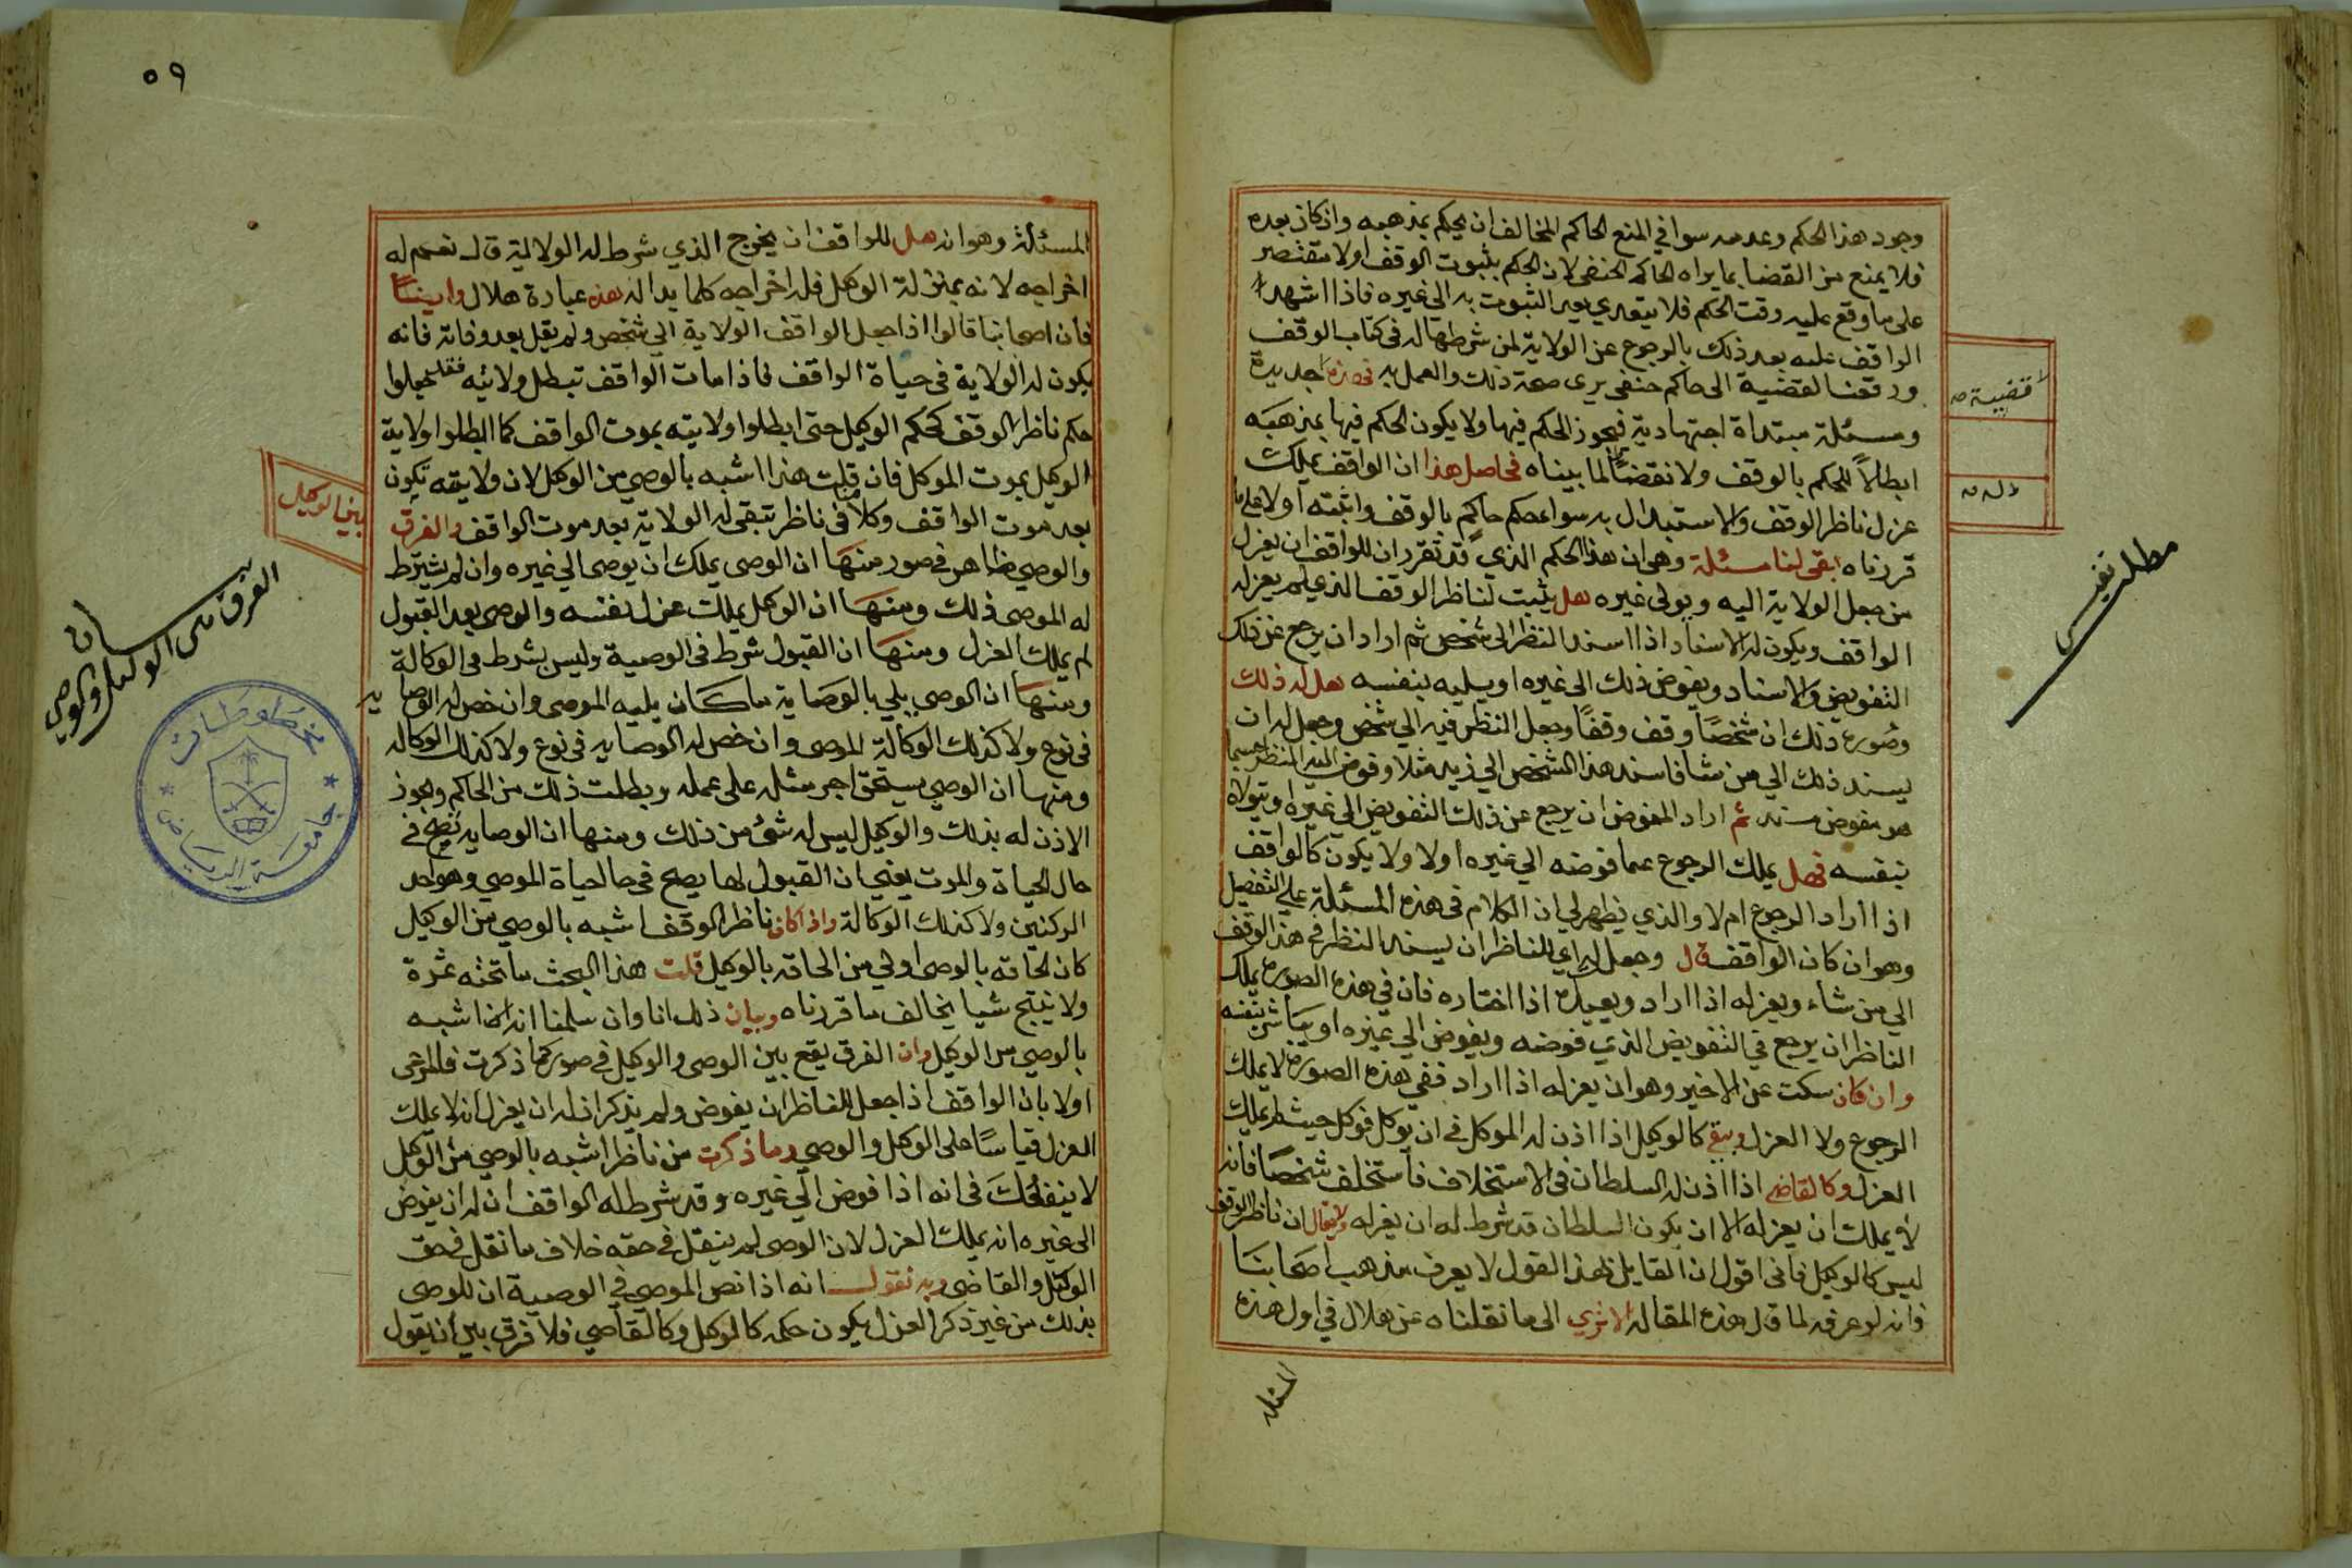 وجود هذا الحكم وعدمه سوا في المنع الحاكم المخالف ان يحكم بمذهبه واذ كان بعده
فلا يمنع من القضا بما يراه الحاكم الحنفى لان الحكم بثبوت الوقف اولا مقتصر
على ما وقع عليه وقت الحكم فلا يتعدي بعد الثبوت به الى غيره فاذا اشهد
الواقف عليه بعد ذلك بالرجوع عن الولاية لمن شرطها له في كتاب الوقف
ورفعنا لقضية الى حاكم حنفي يرى صحة ذلك والعمل به فهذه جديدة
قضية
ومسئلة مبتداة اجتهادية فيجوز الحكم فيها ولا يكون الحكم فيها بمذهبه
ابطالاً للحكم بالوقف ولا نقضاً لما بيناه فحاصل هذا ان الواقف يملك
عزل ناظر الوقف والاستبدال به سوا حكم حاكم بالوقف واثبته اولا على ما
قررناه بقى لنا مسئلة وهى ان هذا الحكم الذي قد تقرر ان للواقف ان يعزل
مطلب نفيس
من جعل الولاية اليه ويولى غيره هل يثبت لناظر الوقف الذي لم يعزله
الواقف ويكون له الاسناد اذا اسند النظر الى شخص ثم اراد ان يرجع عن ذلك
التفويض والاسناد ويفوض ذلك الى غيره او يليه بنفسه هل له ذلك
وصورة ذلك ان شخصًا وقف وقفًا وجعل النظر فيه الي شخص وجعل له ان
يسند ذلك الي من شا فاسند هذا الشخص الي زيد مثلا وفوض اليه النظر حسبما
هو مفوض مسند ثم اراد المفوض ان يرجع عن ذلك التفويض الي غيره او يتولاه
بنفسه فهل يملك الرجوع عما فوضه الي غيره اولا ولا يكون كالواقف
اذا اراد الرجوع ام لا والذي يظهر لي ان الكلام في هذه المسئلة على التفصيل
وهو ان كان الواقف قال وجعل لراي الناظر ان يسند النظر في هذا الوقف
الي من شاء ويعزله اذا اراد ويعيده اذا اختاره فان في هذه الصورة يملك
الناظر ان يرجع في التفويض الذي فوضه ويفوض الي غيره او يباشر بنفسه
وان كان سكت عن الاخير وهو ان يعزله اذا اراد ففي هذه الصورة لا يملك
الرجوع ولا العزل وبقي كالوكيل اذا اذن له الموكل في ان يوكل فوكل حيث لا يملك
العزل وكالقاضي اذا اذن له السلطان في الاستخلاف فاستخلف شخصًا فانه
لا يملك ان يعزله الا ان يكون السلطان قد شرط له ان يعزله ولا يقال ان ناظر الوقف
ليس كالوكيل فانى اقول ان القايل لهذا القول لا يعرف مذهب اصحابنا
فانه لو عرفه لما قال هذه المقالة الا ترى الى ما نقلناه عن هلال في اول هذه
المسئلة
٥٩
المسئلة وهو انه هل للواقف ان يخرج الذي شرط له الولاية قال نعم له
اخراجه لانه بمنزلة الوكيل فله اخراجه كلما بدا له هذه عبارة هلال وايضًا
فان اصحابنا قالوا اذا جعل الواقف الولاية الي شخص ولم يقل بعد وفاته فانه
يكون له الولاية في حياة الواقف فاذا مات الواقف تبطل ولايته فقد جعلوا
حكم ناظر الوقف كحكم الوكيل حتى ابطلوا ولايته بموت الواقف كما ابطلوا ولاية
الوكيل بموت الموكل فان قلت هذا اشبه بالوصي من الوكيل لان ولايته تكون
بعد موت الواقف وكلامنا في ناظر تبقى له الولاية بعد موت الواقف والفرق
بين الوكيل
والوصي ظاهر في صور منها ان الوصى يملك ان يوصى الي غيره وان لم يشترط
بيان
الفرق بين الوكيل والوصي
له الموصى ذلك ومنها ان الوكيل يملك عزل نفسه والوصى بعد القبول
لم يملك العزل ومنها ان القبول شرط في الوصية وليس بشرط في الوكالة
ومنها ان الوصي يلي بالوصاية ما كان يليه الموصى وان خص له الوصاية
في نوع ولا كذلك الوكالة للموصى وان خص له الوصايه في نوع ولا كذلك الوكاله
ومنها ان الوصي يستحق اجر مثله على عمله ويطلب ذلك من الحاكم ويجوز
الاذن له بذلك والوكيل ليس له شئ من ذلك ومنها ان الوصايه تصح في
حال الحياة والموت يعني ان القبول لها يصح في حال حياة الموصي وهو احد
الركنين ولا كذلك الوكالة واذا كان ناظر الوقف اشبه بالوصي من الوكيل
كان الحاقه بالوصي اولي من الحاقه بالوكيل قلت هذا البحث ما تحته ثمرة
ولا ينتج شيا يخالف ما قررناه وبيان ذلك انا وان سلمنا انه انما اشبه
بالوصي من الوكيل وان الفرق يقع بين الوصى والوكيل في صور كما ذكرت فالمدعى
اولا بان الواقف اذا جعل للناظر ان يفوض ولم يذكر ان له ان يعزل انه لا يملك
العزل قياسًا على الوكيل والوصي وما ذكرت من ناظر اشبه بالوصي من الوكيل
لا ينفعك في انه اذا فوض الي غيره وقد شرط له الواقف ان له ان يفوض
الى غيره انه يملك العزل لان الوصى لم ينقل في حقه خلاف ما نقل في حق
الوكيل والقاضي وبه نقول انه اذا نص الموصي في الوصية ان للوصى
بذلك من غير ذكر العزل يكون حكمه كالوكيل وكالقاضي فلا فرق بين ان يقول
مخطوطات
جامعة الرياض